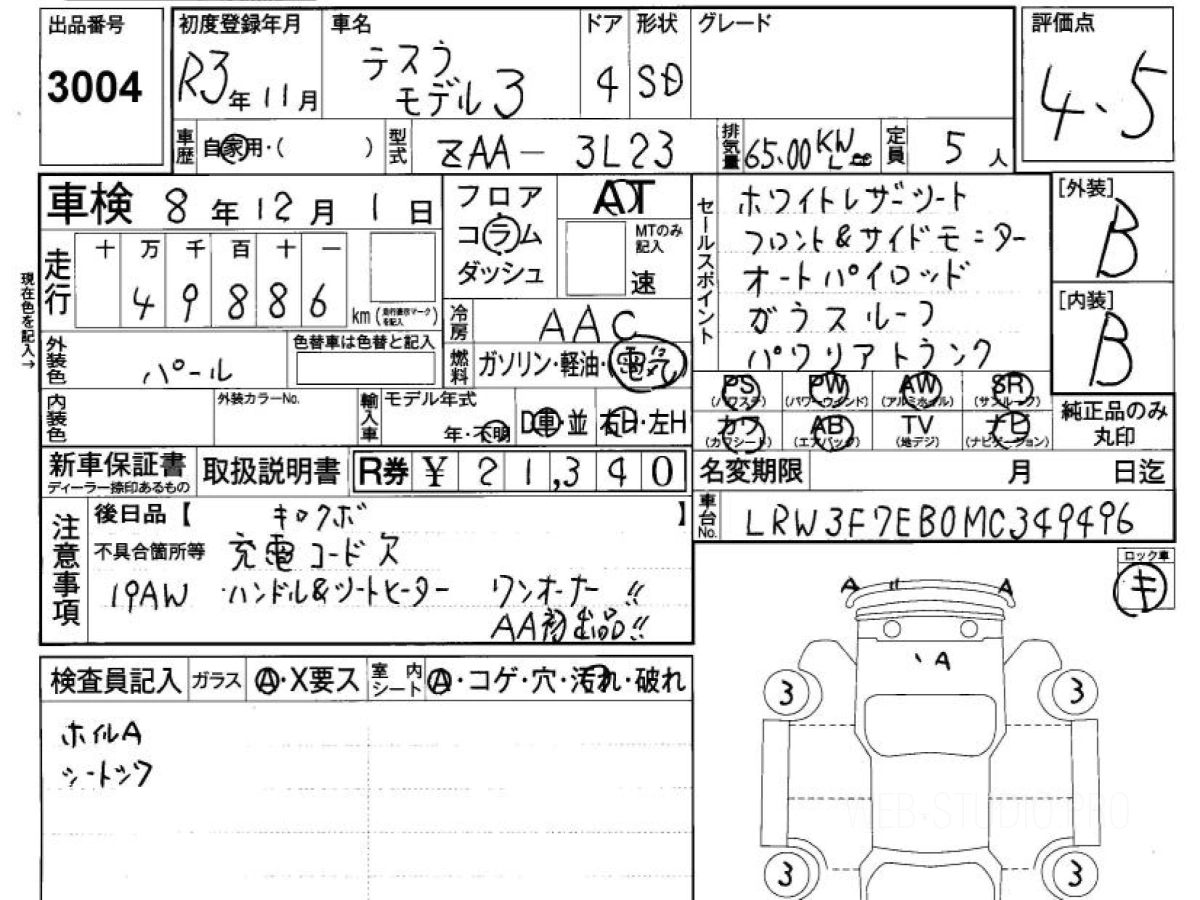 出品番号
3004
初度登録年月
R3年11月
車名
テスラ
モデル3
ドア
4
形状
SD
グレード
評価点
4.5
車歴
自家用・( )
型式
ZAA-3L23
排気量
65.00 KW L cc
定員
5人
車検 8年12月1日
フロア
コラム
ダッシュ
AT
MTのみ
記入
速
セールスポイント
ホワイトレザーシート
フロント&サイドモニター
オートパイロッド
ガラスルーフ
パワリアトランク
[外装]
B
[内装]
B
純正品のみ
丸印
現在色を記入→
走行
十 万 千 百 十 一
4 9 8 8 6
km (走行メーター記入)
冷房
AAC
燃料
ガソリン・軽油・電気
外装色
パール
色替車は色替と記入
PS
(パワステ)
PW
(パワーウインド)
AW
(アルミホイル)
SR
(サンルーフ)
カワ
(カワシート)
AB
(エアバッグ)
TV
(地デジ)
ナビ
(ナビゲーション)
内装色
外装カラーNo.
輸入車
モデル年式
年・不明
D車・並
右H・左H
新車保証書
ディーラー捺印あるもの
取扱説明書
R券 ¥ 21,340
名変期限 月 日迄
車台No.
LRW3F7EB0MC349496
注意事項
後日品【 キロクボ 】
不具合箇所等 充電コード欠
19AW ハンドル&シートヒーター ワンオーナー!!
AA初出品!!
ロック車
キ
検査員記入
ガラス
A・X要ス
室内
シート
A・コゲ・穴・汚れ・破れ
ホイルA
シートシワ
A
A
A
3
3
3
3
WEB-STUDIO PRO